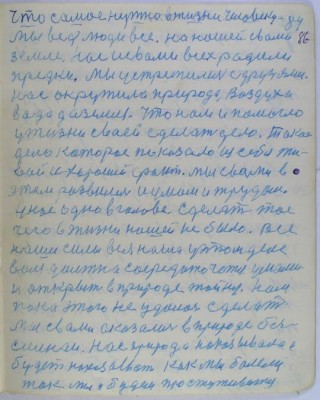 Что самое нужно в жизни человеку
Мы ведь люди все. на нашей с вами 86
земле. нас с вами всех родили
предки. Мы устремились с друзьями.
нас окружила природа, воздух и
вода да земля. Что нам и помогло
у жизни своей сделать дело. Такое
дело которое показало из себя жи-
вой и хороший факт. мы с вами в
этом развились и умом и трудом.
у нас одно в голове сделать то
чего в жизни нашей не было. Все
наши силы вся наша у этом деле
воля должна сосредоточить умами
и открыть в природе тайну. Нам
пока этого не удалось сделать
мы с вами оказались в природе бес-
сильны. Нас природа наказывала и
будет наказывать как мы болели
так мы и будем простуживать